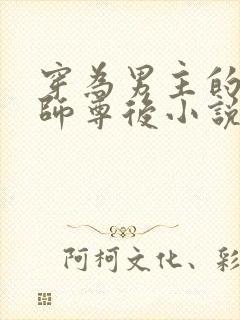 穿為男主的
師尊後小說
阿柯文化、彩